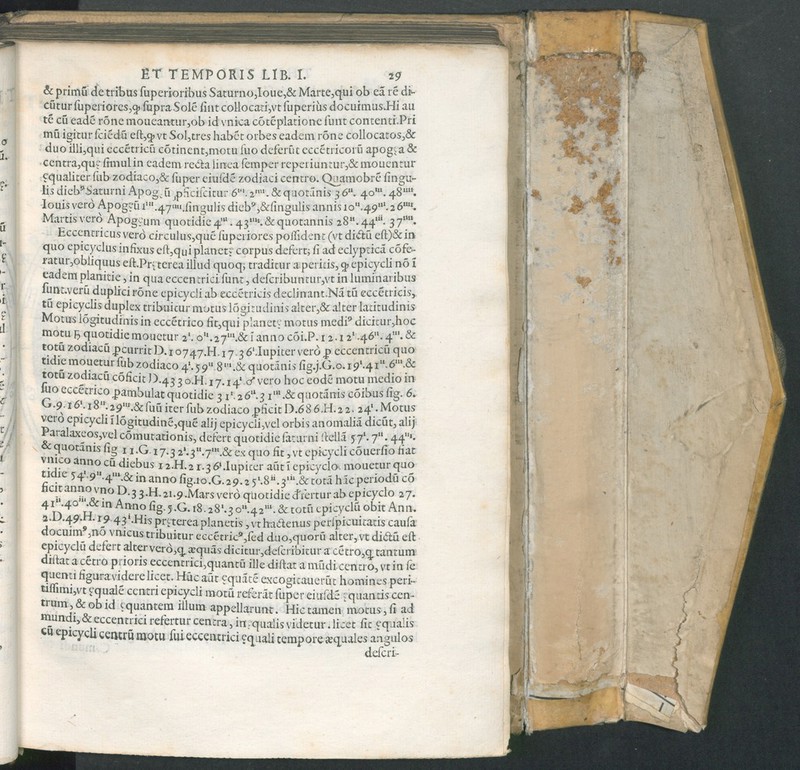 ET TEMPORIS LIB. I. 29
& primū de tribus superioribus Saturno, Ioue, & Marte, qui ob eā rē di-
cūtur superiores, ꝙ supra Solē sint collocati, vt superiùs docuimus. Hi au
tē cū eadē rōne moueantur, ob id vnica cōtēplatione sunt contenti. Pri
mū igitur sciēdū est, ꝙ vt Sol, tres habēt orbes eadem rōne collocatos, &
duo illi, qui eccētricū cōtinent, motu suo deferūt eccētricorū apogęa &
centra, quę simul in eadem recta linea semper reperiuntur, & mouentur
ęqualiter sub zodiaco, & super eiusdē zodiaci centro. Quamobrē singu-
lis diebꝰ Saturni Apogęū ꝓficiscitur & quotānis
Iouis verò Apogęū singulis diebꝰ, & singulis annis
Martis verò Apogęum quotidie & quotannis
Eccentricus verò circulus, quē superiores possident (vt dictū est) & in
quo epicyclus infixus est, qui planetę corpus defert, si ad eclypticā cōfe-
ratur, obliquus est. Pręterea illud quoqꝫ traditur a peritis, ꝙ epicycli nō ī
eadem planitie, in qua eccentrici sunt, describuntur, vt in luminaribus
sunt. verū duplici rōne epicycli ab eccētricis declinant. Nā tū eccētricis,
tū epicyclis duplex tribuitur motus lōgitudinis alter, & alter latitudinis
Motus lōgitudinis in eccētrico fit, qui planetę motus mediꝰ dicitur, hoc
motu ♄ quotidie mouetur & ī anno cōi.
totū zodiacū ꝑcurrit D. 10747. H. 17. 36ᴵ. Iupiter verò ꝑ eccentricū quo
tidie mouetur sub zodiaco & quotānis &
totū zodiacū cōficit D. 4330. H. 17. 14ᴵ. ♂ vero hoc eodē motu medio in
suo eccētrico ꝑambulat quotidie & quotānis cōibus sig. 6.
& suū iter sub zodiaco ꝑficit D. 686. H. 22. 24ᴵ. Motus
verò epicycli ī lōgitudinē, quē alij epicycli, vel orbis anomaliā dicūt, alij
Paralaxeos, vel cōmutationis, defert quotidie saturni stellā
& quotānis & ex quo fit, vt epicycli cōuersio fiat
vnico anno cū diebus 12. H. 21. 36ᴵ. Iupiter aūt ī epicyclo mouetur quo
tidie & in anno & totā hāc periodū cō
ficit anno vno D. 33. H. 21. 9. Mars verò quotidie defertur ab epicyclo 27.
& in Anno & totū epicyclū obit Ann.
2. D. 49. H. 19. 43ᴵ. His pręterea planetis, vt hactenus perspicuitatis causa
docuimꝰ, nō vnicus tribuitur eccētricꝰ, sed duo, quorū alter, vt dictū est
epicyclū defert alter verò, ꝗ æquās dicitur, describitur a cētro, ꝗ tantum
distat a cētro prioris eccentrici, quantū ille distat a mūdi centro, vt in se
quenti figura videre licet. Hūc aūt ęquātē excogitauerūt homines peri-
tissimi, vt ęqualē centri epicycli motū referāt super eiusdē ęquantis cen-
trum, & ob id ęquantem illum appellarunt. Hic tamen motus, si ad
mundi, & eccentrici refertur centra, inęqualis videtur. licet sit ęqualis
cū epicycli centrū motu sui eccentrici ęquali tempore æquales angulos
descri-